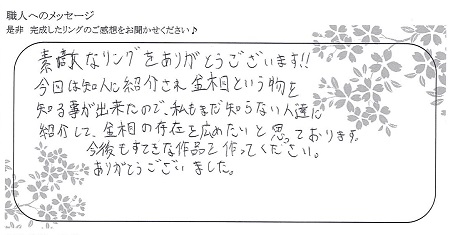 職人へのメッセージ
是非 完成したリングのご感想をお聞かせください♪
素敵なリングをありがとうございます!!
今回は知人に紹介され金相という物を
知る事が出来たので、私もまだ知らない人達に
紹介して、金相の存在を広めたいと思っております。
今後もすてきな作品を作ってください。
ありがとうございました。